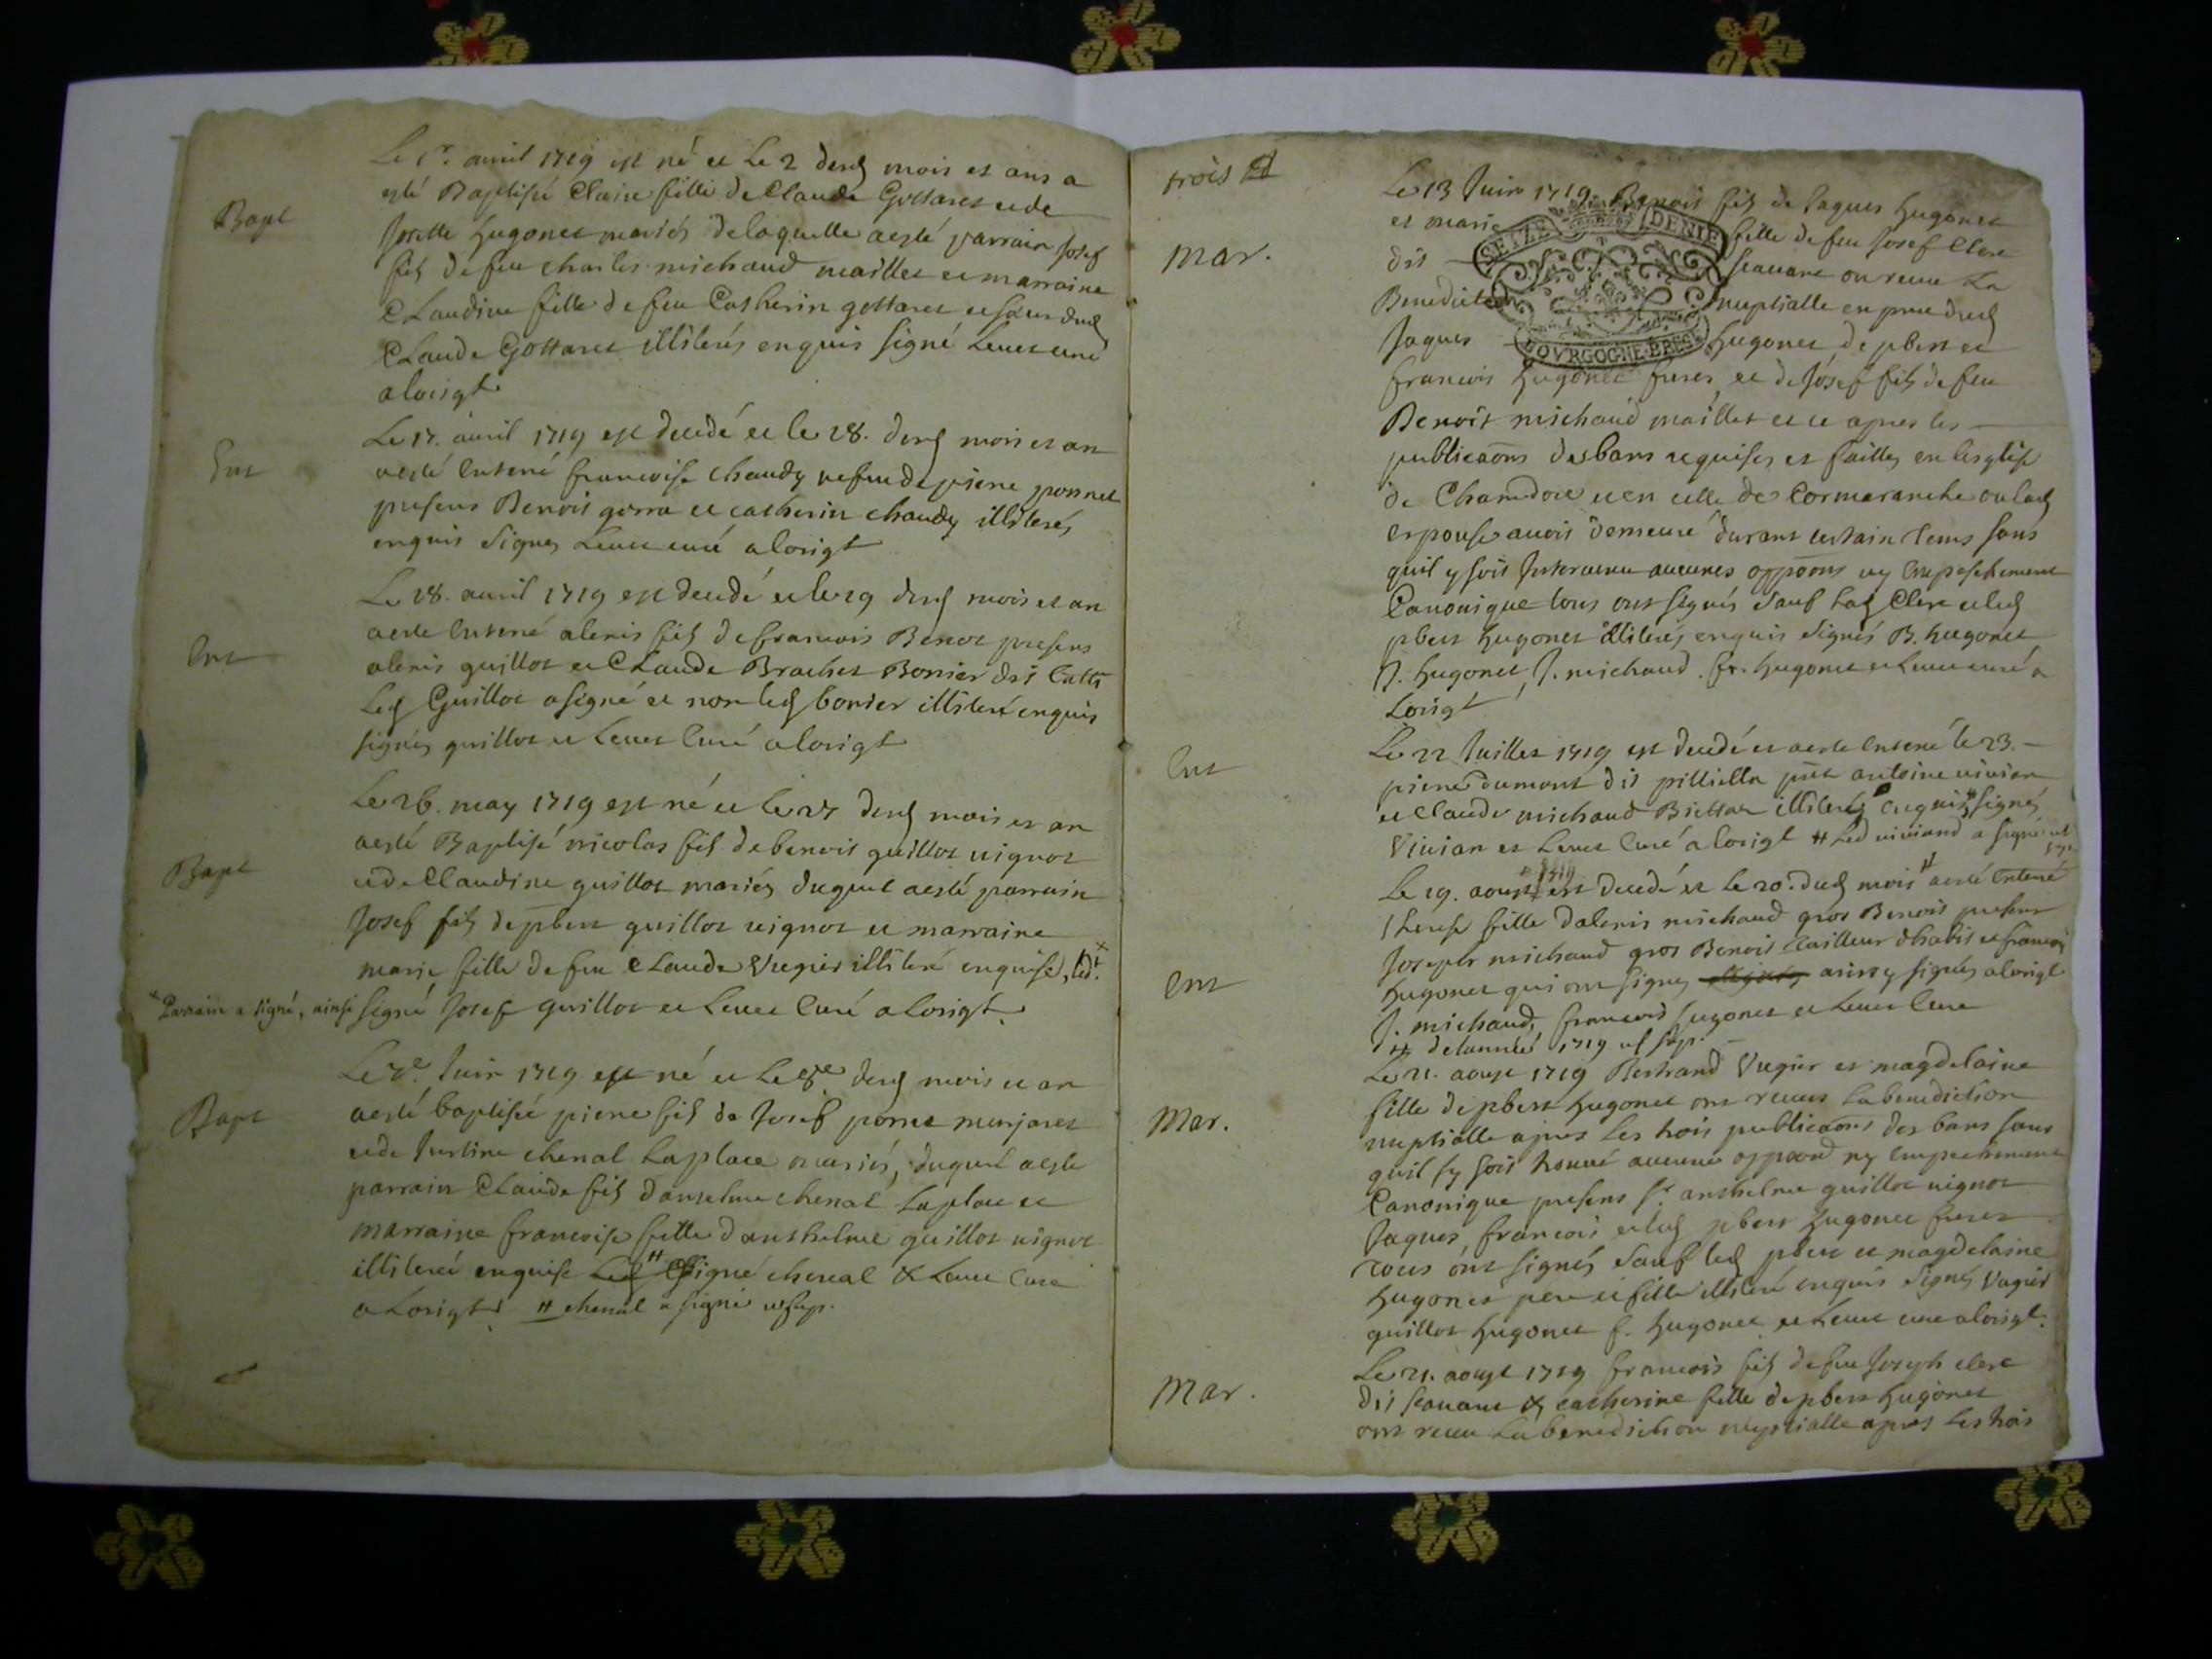 Le 1er. avril 1719 est né et Le 2 desd mois et ans a
Bapt
esté Baptisé Claire fille de Claude Gottaret et de
Josette hugonet mariés delaquelle aesté parrain Josef
fils defeu charles michaud maillet et marraine
CLaudine fille defeu Catherin gottaret et sœur dud
CLaude Gottaret illiterés enquis signé Levet curé
alorigt
Le 17. avril 1719 est decedé et le 18. desd mois et an
Ent
aesté Enterré francoise chaudy vefve de piere ponnet
presens Benoit gorra et catherin chaudy illiterés
enquis signés Levet curé alorigt
Le 28. avril 1719 est decedé et le 29 desd mois et an
Ent
aeste Enterré alexis fils defrancois Benoz presens
alexis guillot et CLaude Brachet Bonier dit
Led Guillot asigné et non led bonier illiteré enquis
signés guillot et Levet Curé alorigt
Le 26. may 1719 est né et le 27 desd mois et an
Bapt
aesté Baptisé nicolas fils debenoit guillot vignot
et de Claudine guillot mariés duquel aesté parrain
Josef fils de pbert guillot vignot et marraine
marie fille defeu cLaude Vugier illiteré enquise, ledt. x
x Parrain a signé, ainsi signé Josef guillot et Levet Curé alorigt.
Le 7e. Juin 1719 est né et Le 8e desd mois et an
Bapt
aesté baptisée piere fils de Josef ponnet monjaret
et de Justine chenal Laplace mariés, duquel aeste
parrain CLaude fils danselme chenal Laplace et
marraine francoise fille danthelme guillot vignot
illiteré enquise Led # signé chenal & Levet Curé
aLorigt. # chenal a signé ut sup.
trois
Le 13 Juin 1719. Benoit fils de Jaques hugonet
et marie fille defeu Josef Clerc
mar.
dit scavant on receu La
Benediction nuptialle en pnce dud
Jaques hugonet, de pbert et
SEIZE DENIE
BOVRGOGNE BRES
francois hugonet freres et de Josef fils defeu
Benoit michaud maillet et ce apres les
publicaons desbans requises et faittes en lesglise
de Chamdore et en celle de Cormaranche ou lad
espouse avoit demeuré durant certain tems sans
quil y soit Intervenu aucunes oppoons ny Empeschement
Canonique tous ont signés sauf Lad Clerc et led
pbert hugonet illiterés enquis signés B. hugonet
J. hugonet, J. michaud. fr. hugonet et Levet curé a
Lorigt
Le 22 Juillet 1719 est decedé et aeste Enterré le 23.
Ent
piere dumont dit pilliella pnt antoine vivian
et claude michaud illiterés enquis # signés
Vivian et Levet Curé alorigt # Led viviand a signé ut sup.
Le 19. aoust 1719 est decedé et le 20. dud mois # aesté Enterré
Therese fille dalexis michaud gros Benoit presens
Joseph michaud gros Benoit tailleur dhabit et francois
Ent
hugonet qui ont signés ainsy signés alorigt
J. michaud, francois hugonet et Levet Cure
# delannée 1719 ut sup.
Le 21. aoust 1719 Bertrand Vugier et magdelaine
Mar.
fille de pbert hugonet ont receus La benediction
nuptialle apres Les trois publicaons des bans sans
quil sy soit trouvé aucunes oppoons ny Empechement
Canonique presens sr. anthelme guillot vignot
Jaques, francois et led pbert hugonet freres
tous ont signés sauf led pbert et magdelaine
hugonet pere et fille illiteré enquis signés Vugier
guillot hugonet f. hugonet et Levet cure alorigt.
Le 21. aoust 1719 francois fils defeu Joseph clerc
Mar.
dit scavant & catherine fille de pbert hugonet
ont receu La benediction nuptialle apres Les trois